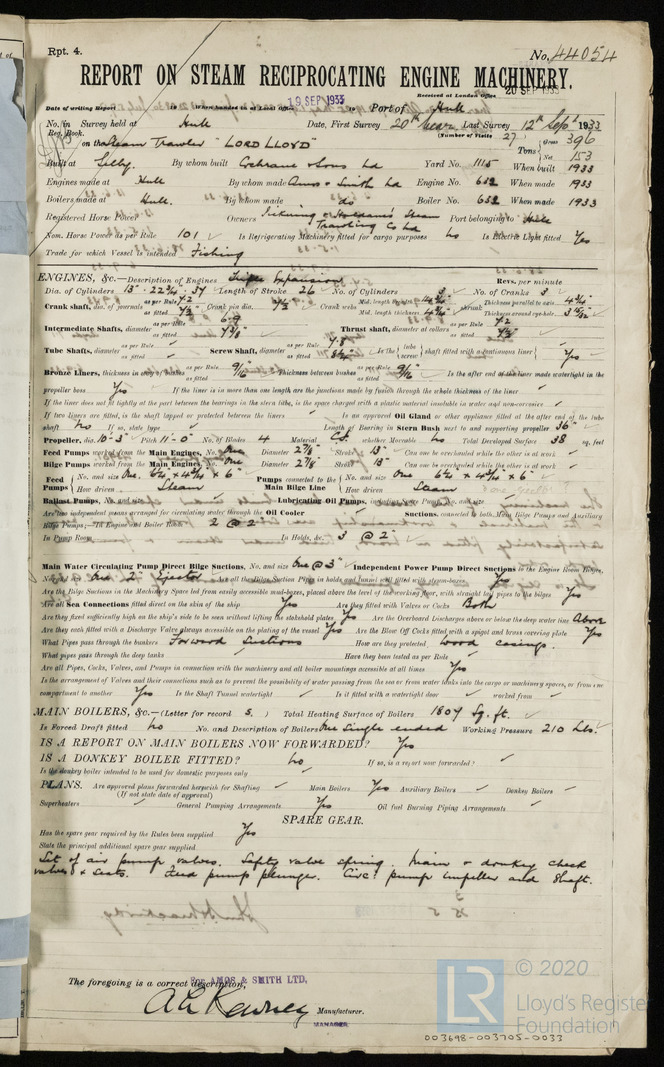 Rpt. 4.
No. 44054
REPORT ON STEAM RECIPROCATING ENGINE MACHINERY.
Received at London Office 20 SEP 1933
Date of writing Report 19 When handed in at Local Office 19 SEP 1933 Port of Hull
No. in Survey held at Hull Date, First Survey 20th Last Survey 12th Sept 1933
Reg. Book. (Number of Visits 27)
on the Steam Trawler "LORD LLOYD" Tons Gross 396 Net 153
Built at Selby. By whom built Cochrane & Sons Ld Yard No. 1115 When built 1933
Engines made at Hull By whom made Amos & Smith Ld Engine No. 652 When made 1933
Boilers made at Hull. By whom made do Boiler No. 652 When made 1933
Registered Horse Power Owners Pickering & Haldane's Steam Trawling Co Ld Port belonging to Hull
Nom. Horse Power as per Rule 101 Is Refrigerating Machinery fitted for cargo purposes No Is Electric Light fitted Yes
Trade for which Vessel is intended Fishing
ENGINES, &c.—Description of Engines Triple Expansion Revs. per minute
Dia. of Cylinders Length of Stroke 26 No. of Cylinders 3 No. of Cranks 3
Crank shaft, dia. of journals as per Rule 7.2 as fitted Crank pin dia. Crank webs Mid. length breadth Mid. length thickness shrunk Thickness parallel to axis Thickness around eye-hole
Intermediate Shafts, diameter as per Rule 6.9 as fitted Thrust shaft, diameter at collars as per Rule 7.2 as fitted
Tube Shafts, diameter as per Rule as fitted Screw Shaft, diameter as per Rule 7.8 as fitted Is the tube screw shaft fitted with a continuous liner Yes
Bronze Liners, thickness in way of bushes as per Rule 9/16 as fitted Thickness between bushes as per Rule 9/16 as fitted Is the after end of the liner made watertight in the
propeller boss Yes If the liner is in more than one length are the junctions made by fusion through the whole thickness of the liner
If the liner does not fit tightly at the part between the bearings in the stern tube, is the space charged with a plastic material insoluble in water and non-corrosive
If two liners are fitted, is the shaft lapped or protected between the liners Is an approved Oil Gland or other appliance fitted at the after end of the tube
shaft No If so, state type Length of Bearing in Stern Bush next to and supporting propeller 36"
Propeller, dia. 10'-3" Pitch 11'-0" No. of Blades 4 Material C.I. whether Moveable No Total Developed Surface 38 sq. feet
Feed Pumps worked from the Main Engines, No. One Diameter 2⅞" Stroke 13" Can one be overhauled while the other is at work
Bilge Pumps worked from the Main Engines, No. One Diameter 2⅞" Stroke 13" Can one be overhauled while the other is at work
Feed Pumps No. and size One. 6¼ × 4¾ × 6" How driven Steam Pumps connected to the Main Bilge Line No. and size One 6¼ × 4¾ × 6" How driven Steam
Ballast Pumps, No. and size Lubricating Oil Pumps, including Spare Pump, No. and size
Are two independent means arranged for circulating water through the Oil Cooler Suctions, connected to both Main Bilge Pumps and Auxiliary
Bilge Pumps;—In Engine and Boiler Room 2 @ 2"
In Pump Room In Holds, &c. 3 @ 2"
Main Water Circulating Pump Direct Bilge Suctions, No. and size One @ 3" Independent Power Pump Direct Suctions to the Engine Room Bilges,
No. and size One 2" Ejector Are all the Bilge Suction Pipes in holds and tunnel well fitted with strum-boxes Yes
Are the Bilge Suctions in the Machinery Space led from easily accessible mud-boxes, placed above the level of the working floor, with straight tail pipes to the bilges Yes
Are all Sea Connections fitted direct on the skin of the ship Yes Are they fitted with Valves or Cocks Both
Are they fixed sufficiently high on the ship's side to be seen without lifting the stokehold plates Yes Are the Overboard Discharges above or below the deep water line Above
Are they each fitted with a Discharge Valve always accessible on the plating of the vessel Yes Are the Blow Off Cocks fitted with a spigot and brass covering plate Yes
What Pipes pass through the bunkers Forward Suctions How are they protected Wood casings.
What pipes pass through the deep tanks Have they been tested as per Rule
Are all Pipes, Cocks, Valves, and Pumps in connection with the machinery and all boiler mountings accessible at all times Yes
Is the arrangement of Valves and their connections such as to prevent the possibility of water passing from the sea or from water tanks into the cargo or machinery spaces, or from one
compartment to another Yes Is the Shaft Tunnel watertight Is it fitted with a watertight door worked from
MAIN BOILERS, &c.—(Letter for record S.) Total Heating Surface of Boilers 1807 Sq. ft.
Is Forced Draft fitted No No. and Description of Boilers One Single ended Working Pressure 210 Lbs.
IS A REPORT ON MAIN BOILERS NOW FORWARDED? Yes
IS A DONKEY BOILER FITTED? No If so, is a report now forwarded?
Is the donkey boiler intended to be used for domestic purposes only
PLANS. Are approved plans forwarded herewith for Shafting Main Boilers Yes Auxiliary Boilers Donkey Boilers
(If not state date of approval)
Superheaters General Pumping Arrangements Yes Oil fuel Burning Piping Arrangements
SPARE GEAR.
Has the spare gear required by the Rules been supplied Yes
State the principal additional spare gear supplied
Set of air pump valves. Safety valve spring. Main & donkey check
valves & seats. Feed pump plunger. Circ. pump impeller and shaft.
The foregoing is a correct description,
FOR AMOS & SMITH LTD,
Manufacturer.
MANAGER
© 2020
LR
Lloyd's Register
Foundation
003698-003705-0033